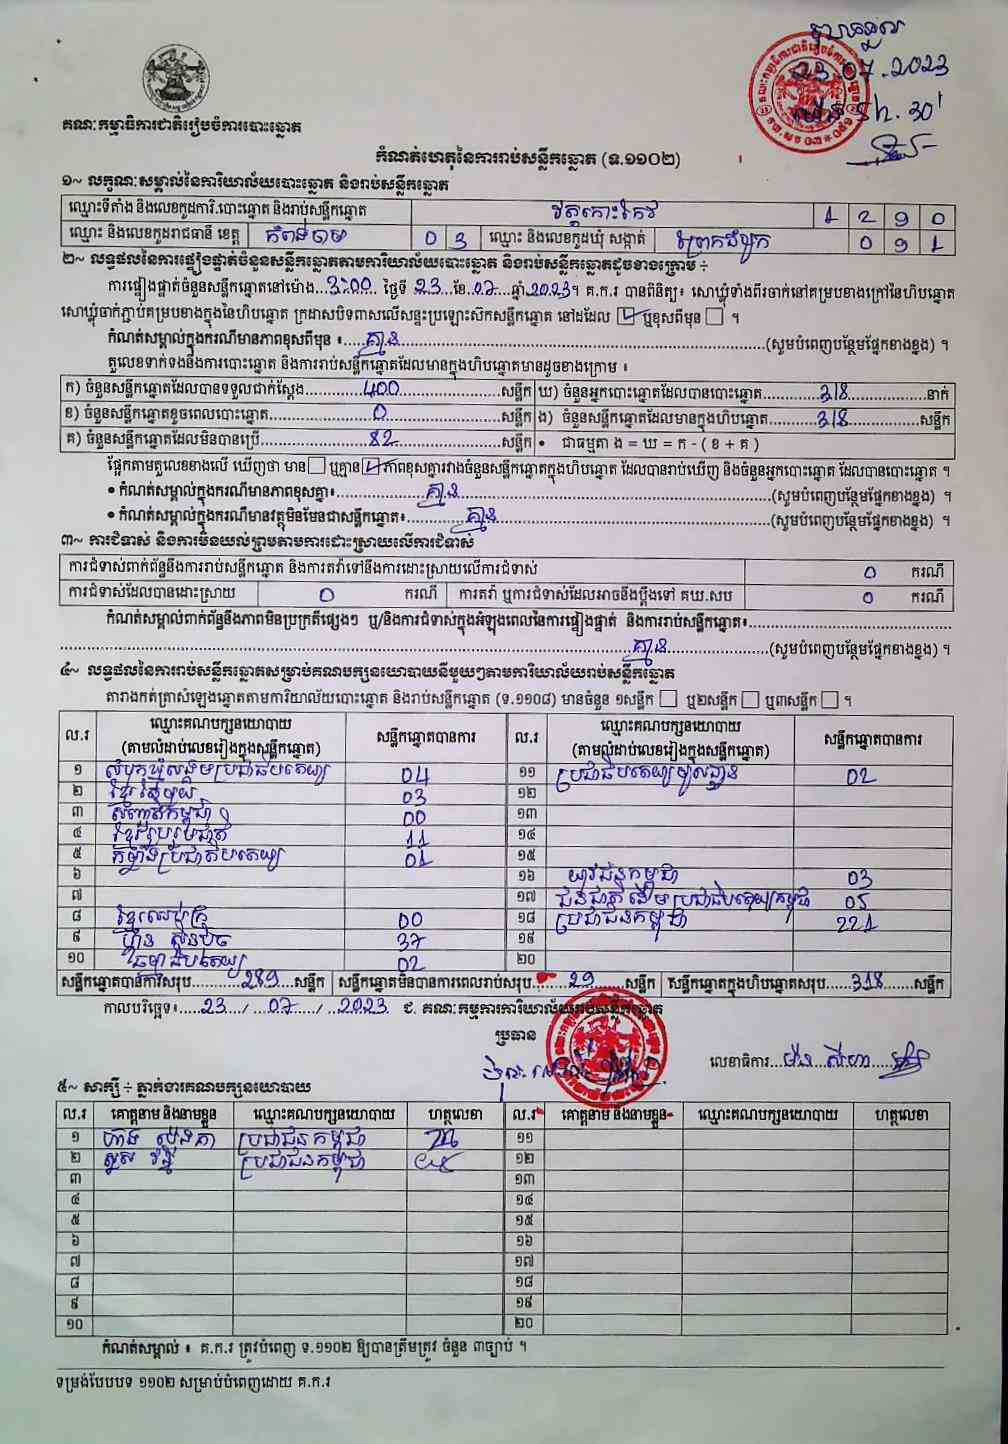 23.07.2023
5h.30'
គណៈកម្មាធិការជាតិរៀបចំការបោះឆ្នោត
កំណត់ហេតុនៃការរាប់សន្លឹកឆ្នោត (ទ.១១០២)
១~ លក្ខណៈសម្គាល់នៃការិយាល័យបោះឆ្នោត និងរាប់សន្លឹកឆ្នោត
ឈ្មោះទីតាំង និងលេខកូដការិ.បោះឆ្នោត និងរាប់សន្លឹកឆ្នោត វត្តកោះកែវ 1 2 9 0
ឈ្មោះ និងលេខកូដរាជធានី ខេត្ត កំពង់ចាម 0 3 ឈ្មោះ និងលេខកូដឃុំ សង្កាត់ 0 9 1
២~ លទ្ធផលនៃការផ្ទៀងផ្ទាត់ចំនួនសន្លឹកឆ្នោតតាមការិយាល័យបោះឆ្នោត និងរាប់សន្លឹកឆ្នោតដូចខាងក្រោម ÷
ការផ្ទៀងផ្ទាត់ចំនួនសន្លឹកឆ្នោតនៅម៉ោង...3:00... ថ្ងៃទី 23 ខែ 07 ឆ្នាំ 2023។ គ.ក.រ បានពិនិត្យ៖ សោឃ្លុំទាំងពីរចាក់នៅគម្របខាងក្រៅនៃហិបឆ្នោត
សោឃ្លុំចាក់ភ្ជាប់គម្របខាងក្នុងនៃហិបឆ្នោត ក្រដាសបិទពាសលើសន្ទះប្រឡោះសឹកសន្លឹកឆ្នោត នៅដដែល ☑ ឬខុសពីមុន ☐ ។
កំណត់សម្គាល់ក្នុងករណីមានភាពខុសពីមុន ៖.....គ្មាន.....(សូមបំពេញបន្ថែមផ្នែកខាងខ្នង) ។
តួលេខទាក់ទងនឹងការបោះឆ្នោត និងការរាប់សន្លឹកឆ្នោតដែលមានក្នុងហិបឆ្នោតមានដូចខាងក្រោម ៖
ក) ចំនួនសន្លឹកឆ្នោតដែលបានទទួលជាក់ស្តែង.....400.....សន្លឹក ឃ) ចំនួនអ្នកបោះឆ្នោតដែលបានបោះឆ្នោត.....318.....នាក់
ខ) ចំនួនសន្លឹកឆ្នោតខូចពេលបោះឆ្នោត.....0.....សន្លឹក ង) ចំនួនសន្លឹកឆ្នោតដែលមានក្នុងហិបឆ្នោត.....318.....សន្លឹក
គ) ចំនួនសន្លឹកឆ្នោតដែលមិនបានប្រើ.....82.....សន្លឹក • ជាធម្មតា ង = ឃ = ក - ( ខ + គ )
ផ្អែកតាមតួលេខខាងលើ ឃើញថា មាន ☐ ឬគ្មាន ☑ ភាពខុសគ្នារវាងចំនួនសន្លឹកឆ្នោតក្នុងហិបឆ្នោត ដែលបានរាប់ឃើញ និងចំនួនអ្នកបោះឆ្នោត ដែលបានបោះឆ្នោត ។
• កំណត់សម្គាល់ក្នុងករណីមានភាពខុសគ្នា៖.....គ្មាន.....(សូមបំពេញបន្ថែមផ្នែកខាងខ្នង) ។
• កំណត់សម្គាល់ក្នុងករណីមានវត្ថុមិនមែនជាសន្លឹកឆ្នោត៖.....គ្មាន.....(សូមបំពេញបន្ថែមផ្នែកខាងខ្នង) ។
៣~ ការជំទាស់ និងការមិនយល់ព្រមតាមការដោះស្រាយលើការជំទាស់
ការជំទាស់ពាក់ព័ន្ធនឹងការរាប់សន្លឹកឆ្នោត និងការតវ៉ាទៅនឹងការដោះស្រាយលើការជំទាស់ 0 ករណី
ការជំទាស់ដែលបានដោះស្រាយ 0 ករណី ការតវ៉ា ឬការជំទាស់ដែលអាចនឹងប្តឹងទៅ គឃ.សប 0 ករណី
កំណត់សម្គាល់ពាក់ព័ន្ធនឹងភាពមិនប្រក្រតីផ្សេងៗ ឬ/និងការជំទាស់ក្នុងអំឡុងពេលនៃការផ្ទៀងផ្ទាត់ និងការរាប់សន្លឹកឆ្នោត៖.....
.....គ្មាន.....(សូមបំពេញបន្ថែមផ្នែកខាងខ្នង) ។
៤~ លទ្ធផលនៃការរាប់សន្លឹកឆ្នោតសម្រាប់គណបក្សនយោបាយនីមួយៗតាមការិយាល័យរាប់សន្លឹកឆ្នោត
តារាងកត់ត្រាសំឡេងឆ្នោតតាមការិយាល័យបោះឆ្នោត និងរាប់សន្លឹកឆ្នោត (ទ.១១០៨) មានចំនួន ១សន្លឹក ☐ ឬ២សន្លឹក ☐ ឬ៣សន្លឹក ☐ ។
ល.រ ឈ្មោះគណបក្សនយោបាយ (តាមលំដាប់លេខរៀងក្នុងសន្លឹកឆ្នោត) សន្លឹកឆ្នោតបានការ ល.រ ឈ្មោះគណបក្សនយោបាយ (តាមលំដាប់លេខរៀងក្នុងសន្លឹកឆ្នោត) សន្លឹកឆ្នោតបានការ
១ សំបុកឃ្មុំសង្គមប្រជាធិបតេយ្យ 04 ១១ 02
២ 03 ១២
៣ 00 ១៣
៤ ខ្មែររួបរួមជាតិ 11 ១៤
៥ កម្លាំងប្រជាធិបតេយ្យ 01 ១៥
៦ ១៦ យុវជនកម្ពុជា 03
៧ ១៧ ជនជាតិដើមប្រជាធិបតេយ្យកម្ពុជា 05
៨ 00 ១៨ ប្រជាជនកម្ពុជា 221
៩ ហ្វ៊ុនស៊ិនប៉ិច 37 ១៩
១០ 02 ២០
សន្លឹកឆ្នោតបានការសរុប.....289.....សន្លឹក សន្លឹកឆ្នោតមិនបានការពេលរាប់សរុប.....29.....សន្លឹក សន្លឹកឆ្នោតក្នុងហិបឆ្នោតសរុប.....318.....សន្លឹក
កាលបរិច្ឆេទ៖.....23..../....07...../...2023 ជ. គណៈកម្មការការិយាល័យរាប់សន្លឹកឆ្នោត
ប្រធាន
លេខាធិការ.... ម៉ន សីហា
៥~ សាក្សី ÷ ភ្នាក់ងារគណបក្សនយោបាយ
ល.រ គោត្តនាម និងនាមខ្លួន ឈ្មោះគណបក្សនយោបាយ ហត្ថលេខា ល.រ គោត្តនាម និងនាមខ្លួន ឈ្មោះគណបក្សនយោបាយ ហត្ថលេខា
១ ប្រជាជនកម្ពុជា ១១
២ ប្រជាជនកម្ពុជា ១២
៣ ១៣
៤ ១៤
៥ ១៥
៦ ១៦
៧ ១៧
៨ ១៨
៩ ១៩
១០ ២០
កំណត់សម្គាល់ ៖ គ.ក.រ ត្រូវបំពេញ ទ.១១០២ ឱ្យបានត្រឹមត្រូវ ចំនួន ៣ច្បាប់ ។
ទម្រង់បែបបទ ១១០២ សម្រាប់បំពេញដោយ គ.ក.រ